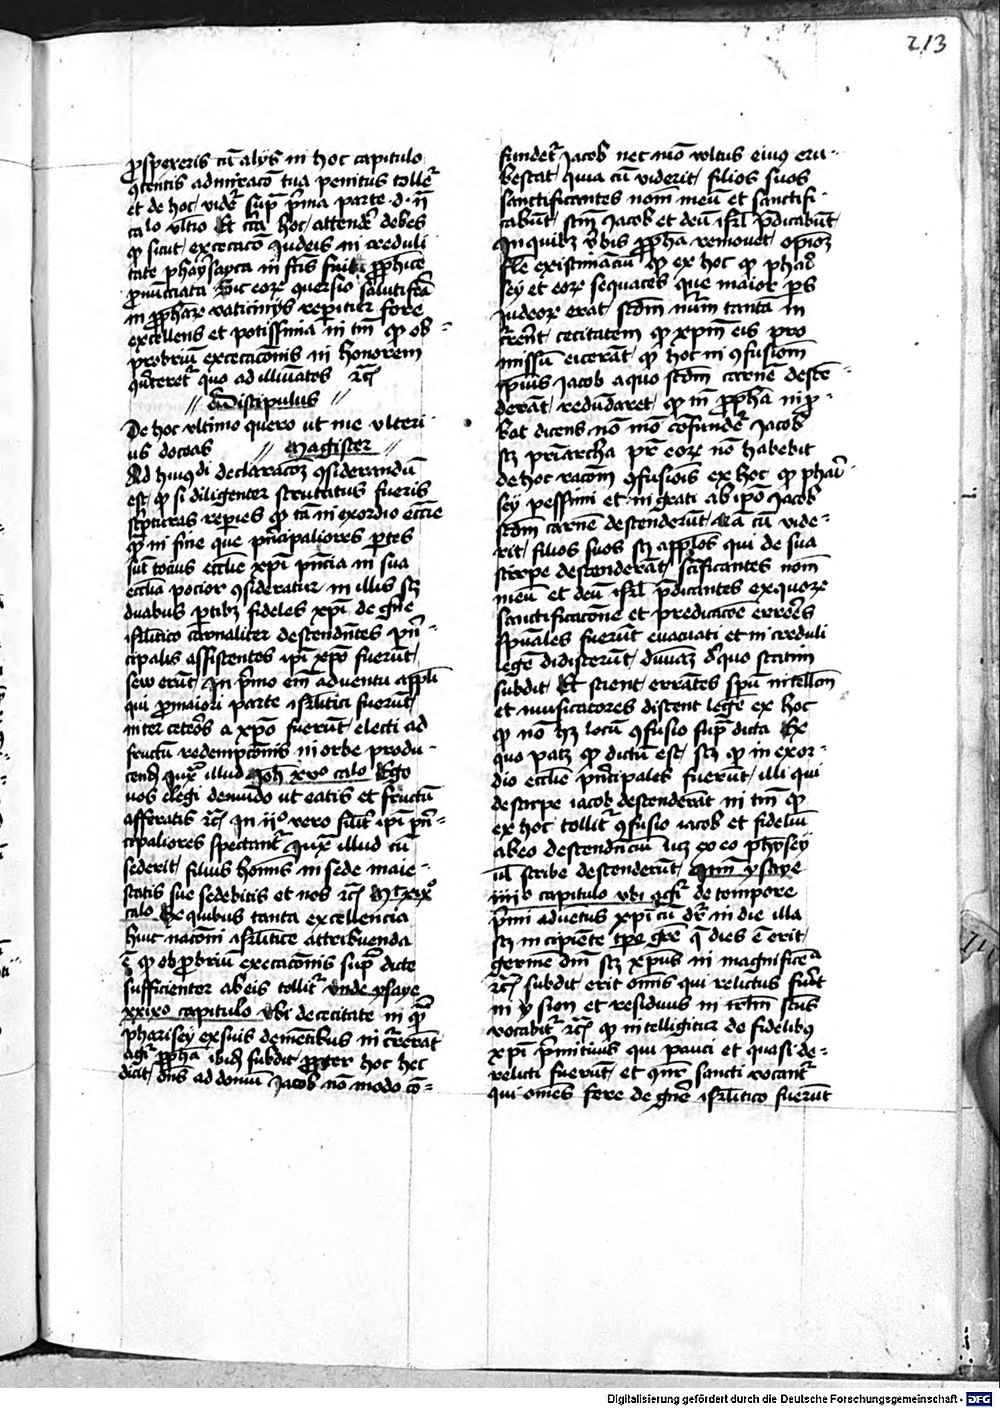 213
prosperis cū alijs in hoc capitulo
ɔtentis admiracō tua penitus tolletʳ
et de hoc videʳ supᵃ prima parte d. ij
calo ultīo Et circa hoc attendēʳ debes
ꝙ sicut excecacō Judeis in creduli
tate phaysayca in scis fuit prophice
pnūciata Sic eoꝝ ɔuersio salutifēa
in ppħaꝝ vaticinijs reperitur fore
excellens et potissima in tm̄ ꝙ ob
probriū excecacōnis in honorem
ɔuerteretʳ quo ad illuīatos ⁊cͣ
// Discipulus //
De hoc ultimo quero ut me ulteri
us doceas // Magister //
Ad huiꝯdi declaracōꝫ ɔsiderandū
est ꝙ si diligenter scrutatus fueris
scripturas reperies ꝙ tā in exordio eccīe
ꝙ in fine que pͥncipaliores ꝑtes
sūt tocius eccīe xpī pͥncia in sua
eccīa pocior ɔsideratur in illis scꝫ
duabus ꝑtibꝫ fideles xpī de gn̄e
isrl̄itico carnaliter descendn̄tes pͥn
cipalis assistentes ipī xpō fuerūt
seu erūt In pͥmo em̄ adventu appl̄i
qui ꝓ maiori parte isrl̄itici fuerūt
inter ceteros a xpō fuerūt electi ad
fructū redempcōnis in orbe produ
cendꝫ Iuxᵃ illud Joħ xvᵒ calo Ego
vos elegi de mūdo ut eatis et fructū
afferatis ⁊cͣ In ijᵒ vero silīʳ ipī pͥn
cipaliores spectantʳ Iuxᵃ illud cū
sederit filius hoīnis in sede maie
statis sue sedebitis et vos ⁊cͣ Mᵗ xixᵒ
calo Ex quibus tanta excellencia
huic nacōni isrl̄itice attribuenda
ē ꝙ obprobriū excecacōnis supᵃ dicte
sufficienter ab eis tollitʳ Unde ysaye
xxixᵒ capitulo Ubi de cecitate in quā
pharisey ex suis demeritibus incʳrerāt
agitʳ ppħa ibidꝫ subdit propter hoc hec
dicit dn̄s ad domū Jacob nō modo cō
fundetʳ Jacob nec mō vultus eiꝯ eru
bescat quia cū viderit filios suos
sanctificantes nom̄ meū et sanctifi
cabūt scm̄ Jacob et deū isrl̄ p̄dicabūt
In quibꝫ v̓bis ppħa removet opīoꝫ
fl̄e existimanciū ꝙ ex hoc ꝙ phari
sey et eoꝝ sequaces que maior ps
Judeoꝝ erat scdm̄ nūm tantā in
cʳrerēt cecitatem ꝙ xpm̄ eis pro
missū eicerāt ꝙ hoc in ɔfusionē
ipīus Jacob a quo scdm̄ carnē descē
derāt redūdaret ꝙ tn̄ ppħa inpro
bat dicens nō mō cōfundetʳ Jacob
scꝫ priarcha pr̄ eoꝝ nō habebit
de hoc racōm ɔfusionis ex hoc ꝙ phari
sey pessimi et ingrati ab ipō Jacob
scdm̄ carnē descenderūt Nā cū vide
rit filios suos scꝫ appl̄os qui de sua
stirpe descenderāt sc̄ificantes nom̄
meū et deū isrl̄ p̄dicantes ex quoꝝ
sanctificacōne et predicacōe errores
spūales fuerūt evacuati et increduli
legē didicerūt divinā de quo statim
subdit Et scient errātes spū intellcm̄
et mussicatores discent legē ex hoc
ꝙ nō hꝫ locū ɔfusio supᵃ dicta Ex
quo patꝫ ꝙ dictū est scꝫ ꝙ in exor
dio eccīe pͥncipales fuerūt illi qui
de stirpe iacob descenderāt in tm̄ ꝙ
ex hoc tollitʳ ɔfusio iacob et fideliū
ab eo descendn̄ciū licꝫ ex eo phisey
ul̄ scribe descenderūt Itm̄ ysaye
iiijᵒ capitulo ubi agitʳ de tempore
pͥmi adventus xpī cū drʳ in die illa
scꝫ incipiēte tpe gre q̄ dies ē erit
germē dn̄i scꝫ xpus in magnificēᵃ
⁊cͣ subdit erit omīs qui relictus fuͥt
in syon et residuus in irl̄m scūs
vocabitʳ ⁊cͣ ꝙ intelligitur de fidelibꝯ
xpī pͥmitivis qui pauci et quasi de
relicti fuerūt et inrʳ sancti vocantʳ
qui omēs fere de gn̄e isrl̄itico fuerūt
Digitalisierung gefördert durch die Deutsche Forschungsgemeinschaft - DFG